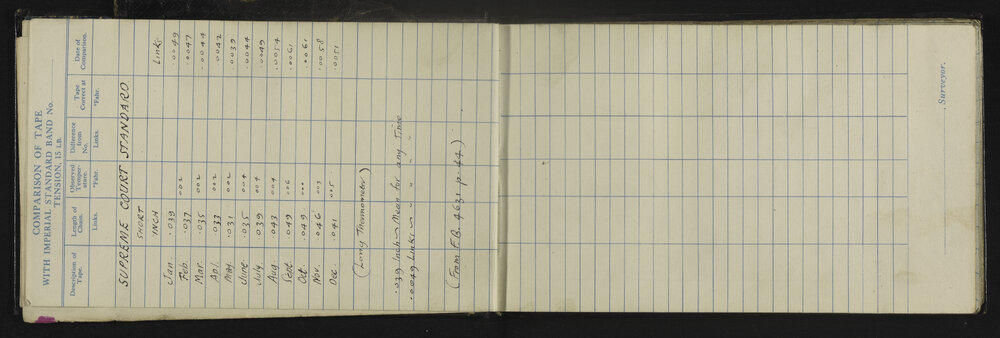 COMPARISON OF TAPE
WITH IMPERIAL STANDARD BAND No.
TENSION, 15 LB.
Description of Tape. Length of Chain. Observed Temper- ature. Difference from No. Tape Correct at Date of Comparison.
Links. °Fahr. Links. °Fahr.
SUPREME COURT STANDARD
SHORT
INCH Links
Jan. .039 .0049
Feb. .037 002 .0047
Mar. .035 002 .0044
Apl. .033 002 .0042
May. .031 002 .0039
June .035 004 .0044
July .039 004 .0049
Aug. .043 004 .0054
Sept. .049 006 .0061
Oct .049 000 .0061
Nov. .046 003 .0058
Dec. .041 005 .0051
(Long Thermometer)
.039 Inch ~ Mean for any Time
.0049 Links ~ " " "
(From F.B. 4631 p. 44)
, Surveyor.